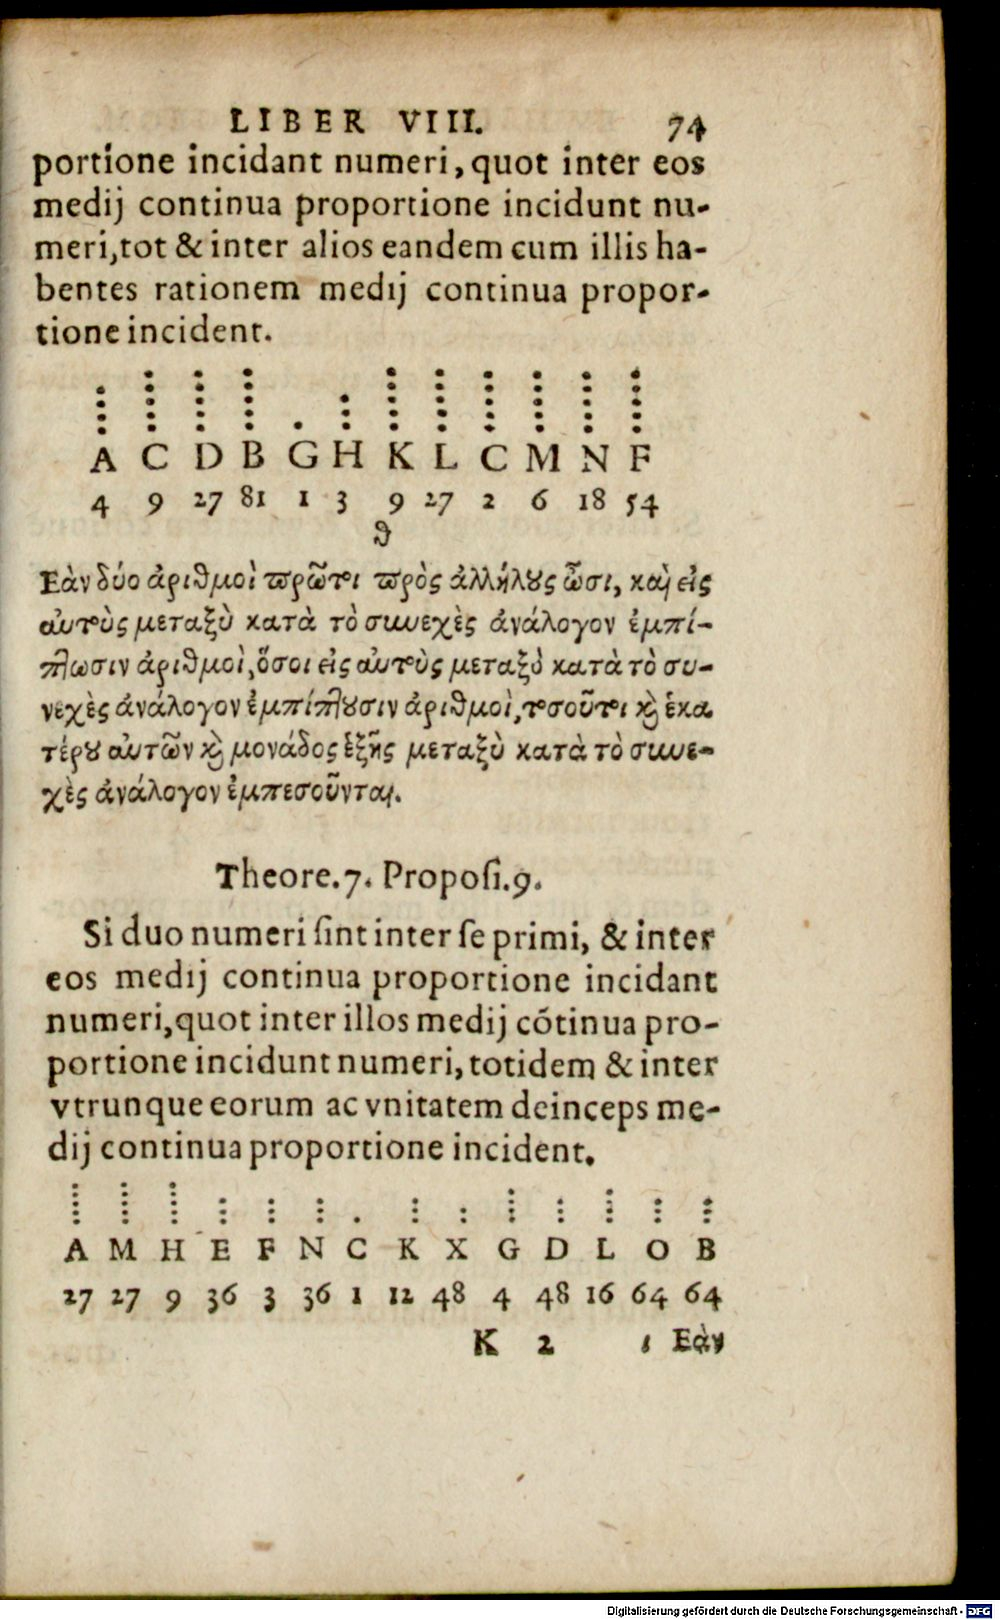 LIBER VIII. 74
portione incidant numeri, quot inter eos
medij continua proportione incidunt nu-
meri, tot & inter alios eandem cum illis ha-
bentes rationem medij continua propor-
tione incident.
A C D B G H K L C M N F
4 9 27 81 1 3 9 27 2 6 18 54
θ
Εὰν δύο ἀριθμοὶ πρῶτοι πρὸς ἀλλήλους ὦσι, καὶ εἰς
αὐτοὺς μεταξὺ κατὰ τὸ συνεχὲς ἀνάλογον ἐμπί-
πτωσιν ἀριθμοὶ, ὅσοι εἰς αὐτοὺς μεταξὺ κατὰ τὸ συ-
νεχὲς ἀνάλογον ἐμπίπτουσιν ἀριθμοὶ, τοσοῦτοι καὶ ἑκα
τέρου αὐτῶν καὶ μονάδος ἑξῆς μεταξὺ κατὰ τὸ συνε-
χὲς ἀνάλογον ἐμπεσοῦνται.
Theore. 7. Proposi. 9.
Si duo numeri sint inter se primi, & inter
eos medij continua proportione incidant
numeri, quot inter illos medij cõtinua pro-
portione incidunt numeri, totidem & inter
vtrunque eorum ac vnitatem deinceps me-
dij continua proportione incident.
A M H E F N C K X G D L O B
27 27 9 36 3 36 1 12 48 4 48 16 64 64
K 2 ι Εὰν
Digitalisierung gefördert durch die Deutsche Forschungsgemeinschaft - DFG